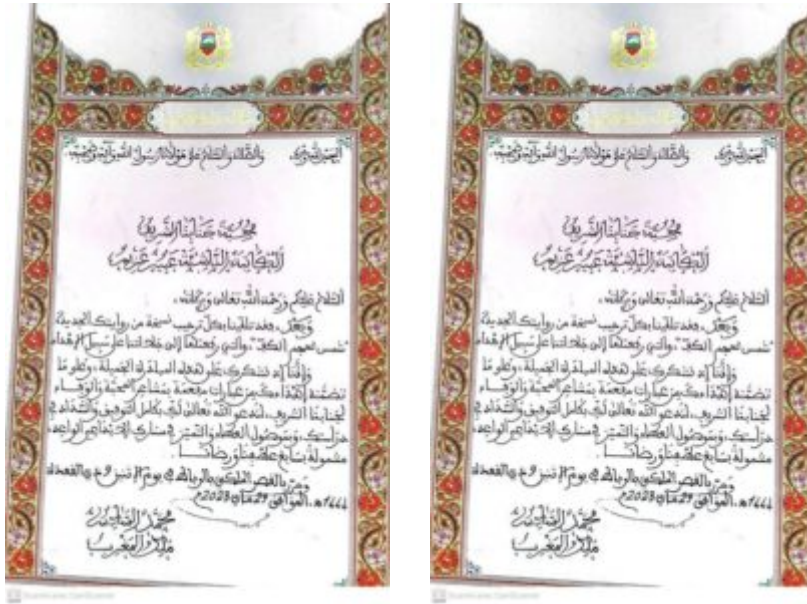 الحمد لله وحده، والصلاة والسلام على مولانا رسول الله وآله وصحبه.
محبة جنابنا الشريف
الكاتبة الناشئة عبير عزيم
السلام عليكم ورحمة الله تعالى وبركاته،
وبعد، فقد تلقينا بكل ترحيب نسخة من روايتك الجديدة
"شمس تحجبها الكف"، والتي رفعتها إلى جلالتنا على سبيل الإهداء
وإننا إذ نشكرك على هذه المبادرة الجميلة، وعلى ما
تضمنه إهداؤك من عبارات مفعمة بمشاعر المحبة والوفاء
لجنابنا الشريف، لندعو الله تعالى لك بكامل التوفيق والسداد في
دراستك، وبموصول العطاء والتميز في مسارك الإبداعي الواعد،
مشمولة بسابغ عطفنا ورضانا.
وحرر بالقصر الملكي بالرباط في يوم الإثنين ذي القعدة
1444هـ، الموافق 29 ماي 2023م
محمد السادس
ملك المغرب
الحمد لله وحده، والصلاة والسلام على مولانا رسول الله وآله وصحبه.
محبة جنابنا الشريف
الكاتبة الناشئة عبير عزيم
السلام عليكم ورحمة الله تعالى وبركاته،
وبعد، فقد تلقينا بكل ترحيب نسخة من روايتك الجديدة
"شمس تحجبها الكف"، والتي رفعتها إلى جلالتنا على سبيل الإهداء
وإننا إذ نشكرك على هذه المبادرة الجميلة، وعلى ما
تضمنه إهداؤك من عبارات مفعمة بمشاعر المحبة والوفاء
لجنابنا الشريف، لندعو الله تعالى لك بكامل التوفيق والسداد في
دراستك، وبموصول العطاء والتميز في مسارك الإبداعي الواعد،
مشمولة بسابغ عطفنا ورضانا.
وحرر بالقصر الملكي بالرباط في يوم الإثنين ذي القعدة
1444هـ، الموافق 29 ماي 2023م
محمد السادس
ملك المغرب